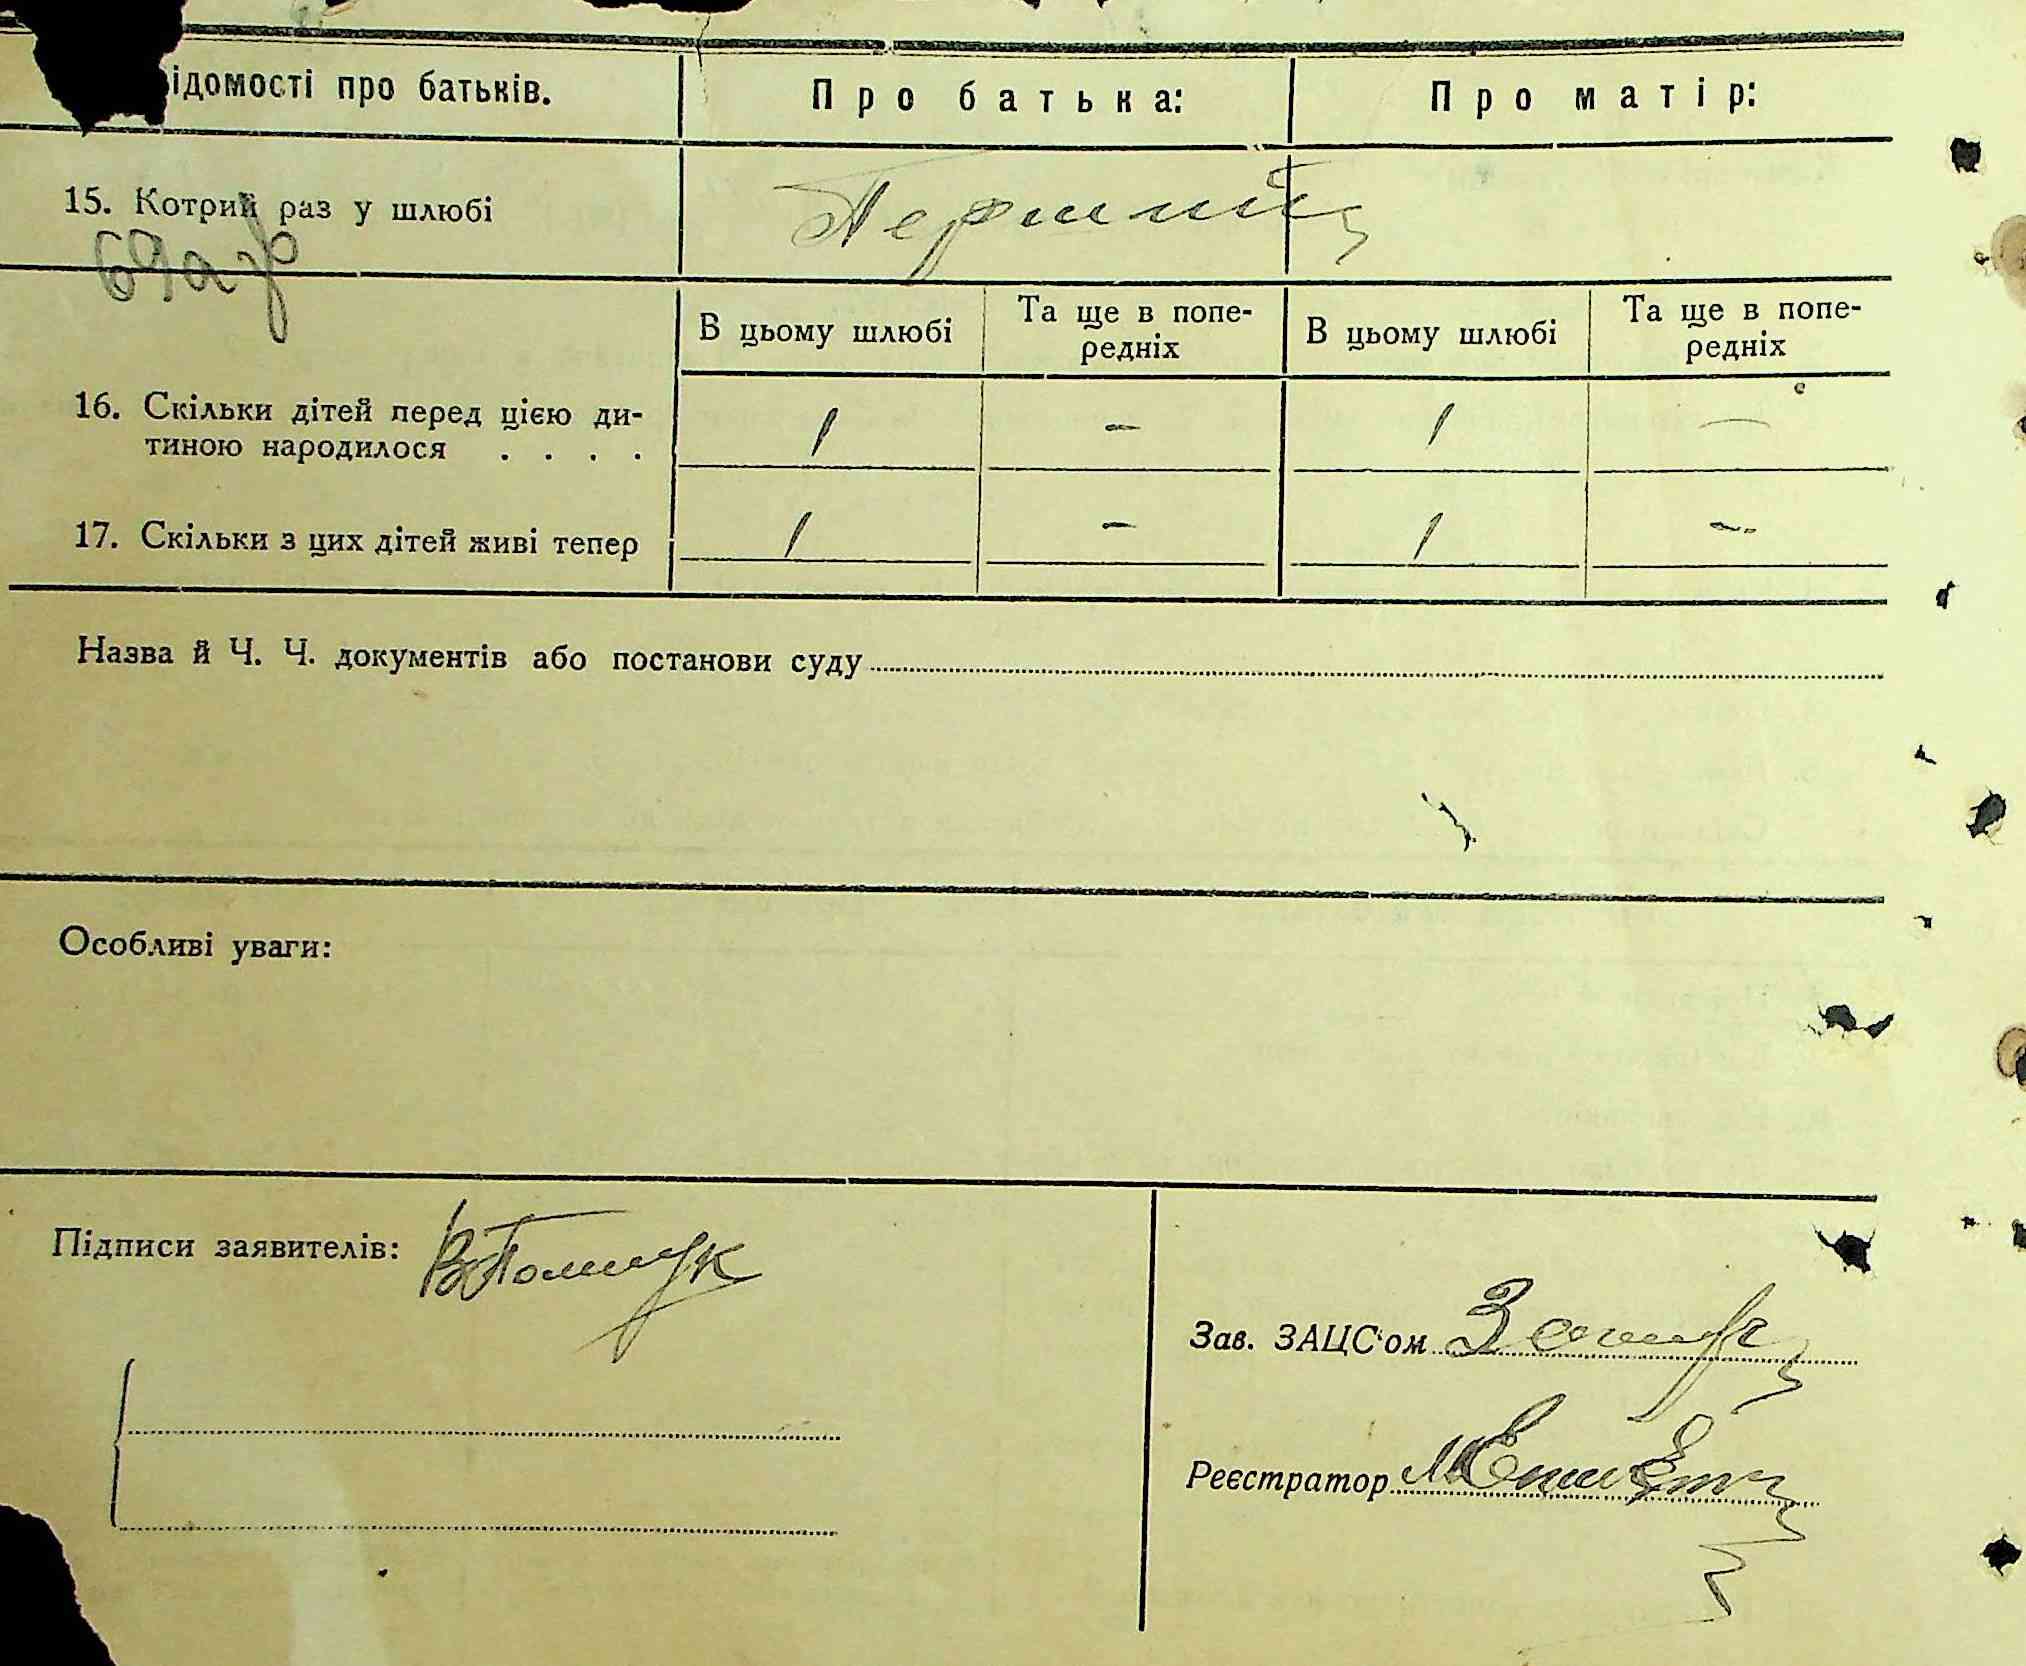 ідомості про батьків. Про батька: Про матір:
15. Котрий раз у шлюбі Перший
В цьому шлюбі Та ще в попе- В цьому шлюбі Та ще в попе-
редніх редніх
16. Скільки дітей перед цією ди-
тиною народилося . . . . 1 - 1 -
17. Скільки з цих дітей живі тепер 1 - 1 -
Назва й Ч. Ч. документів або постанови суду
Особливі уваги:
Підписи заявителів:
Зав. ЗАЦС'ом
Реєстратор